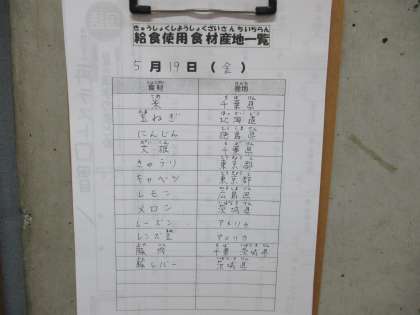 きゅうしょくしようしょくざいさんちいちらん
給食使用食材産地一覧
5月19日(金)
食材 産地
米 千葉県
玉ねぎ 北海道
にんじん 徳島県
大根 千葉県
きゅうり 東京都
キャベツ 東京都
レモン 広島県
メロン 茨城県
レーズン アメリカ
レンズ豆 アメリカ
豚肉 千葉 茨城県
豚レバー 茨城県